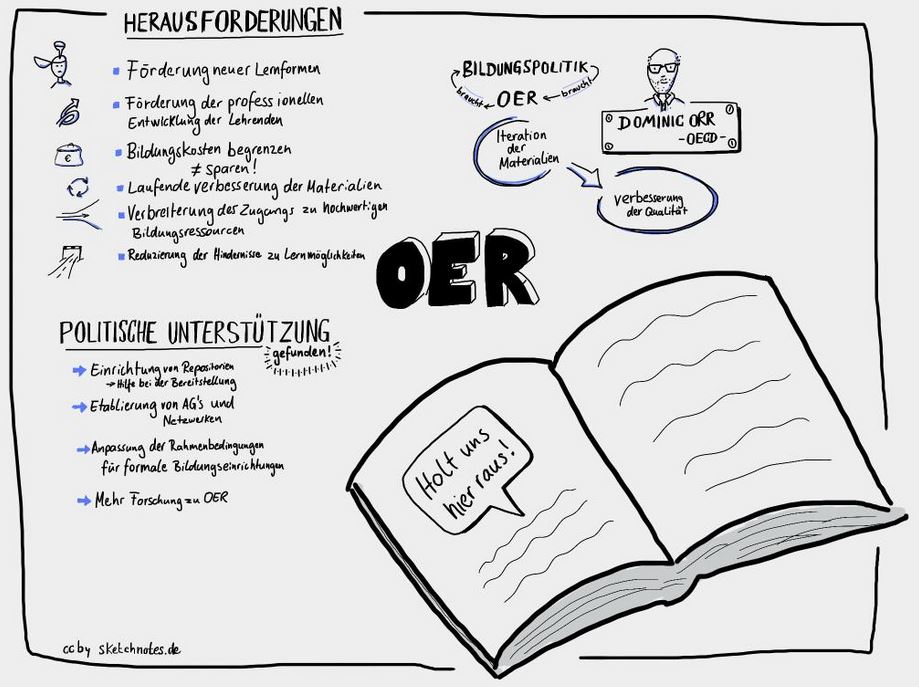 HERAUSFORDERUNGEN
Förderung neuer Lernformen
Förderung der profess ionellen
Entwicklung der Lehrenden
€
Bildungskosten begrenzen
≠ sparen!
Laufende verbesserung der Materialien
Verbreiterung des Zugangs zu hochwertigen
Bildungsressourcen
Reduzierung der Hindernisse zu Lernmöglichkeiten
BILDUNGSPOLITIK
braucht OER braucht
Iteration
der
Materialien
verbesserung
der Qualität
DOMINIC ORR
-OECD-
OER
POLITISCHE UNTERSTÜTZUNG
gefunden!
Einrichtung von Repositorien
→ Hilfe bei der Bereitstellung
Etablierung von AG's und
Netzwerken
Anpassung der Rahmenbedingungen
für formale Bildungseinrichtungen
Mehr Forschung zu OER
Holt uns
hier raus!
cc by sketchnotes.de